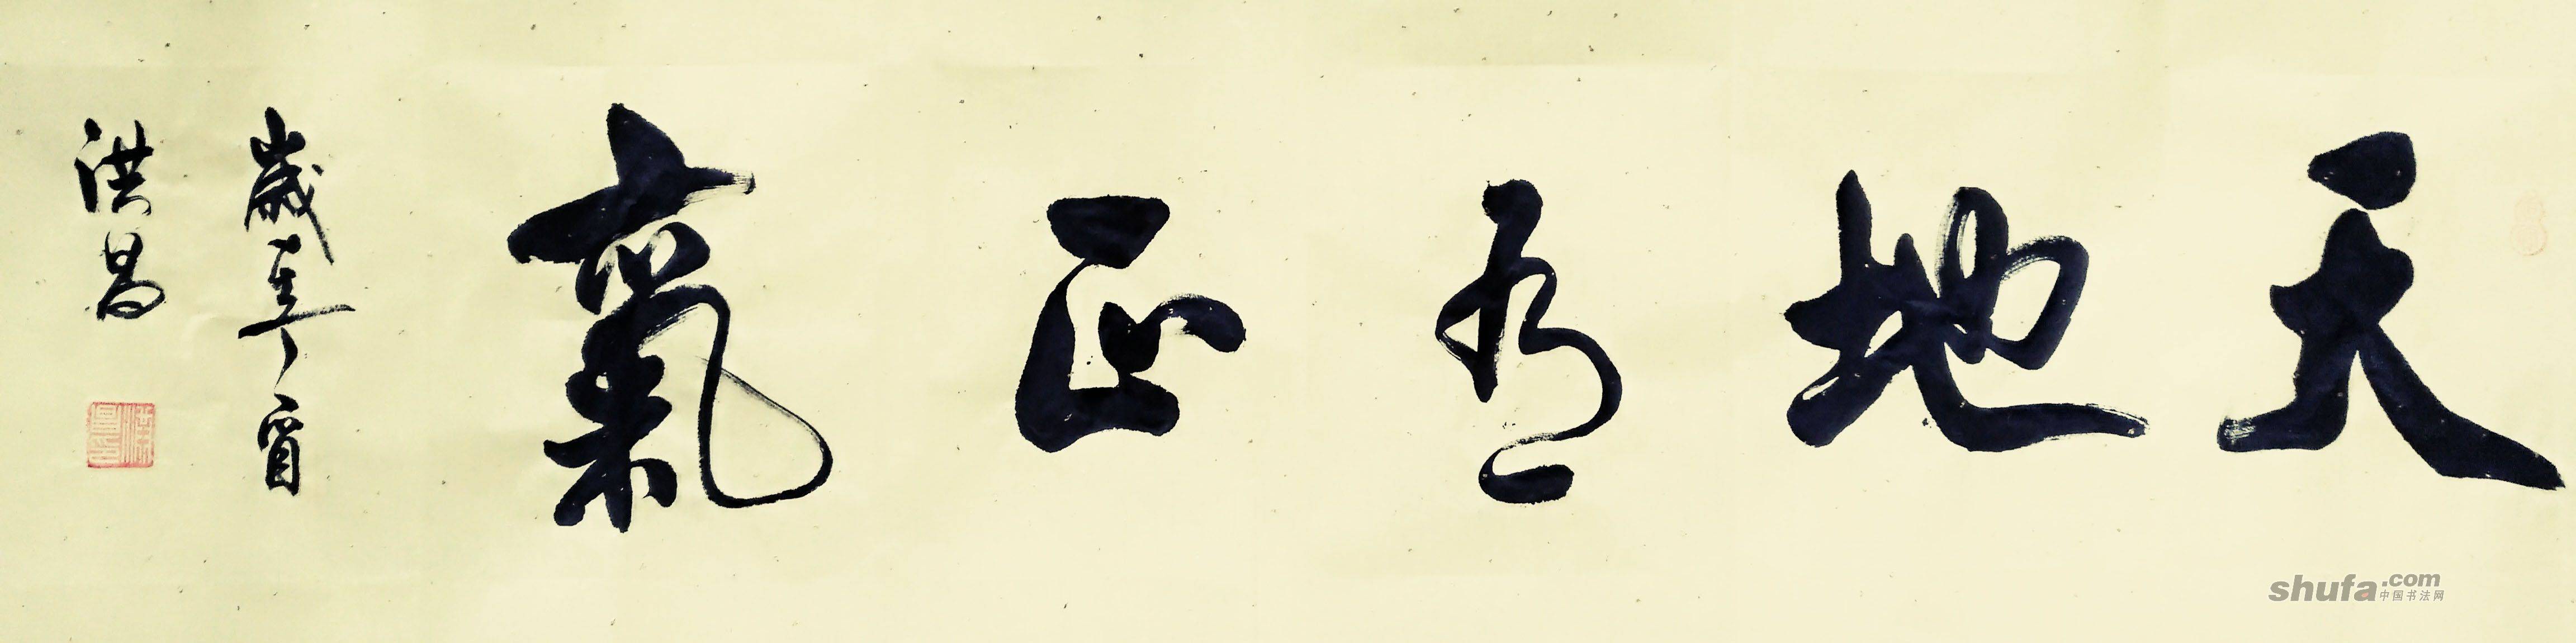 天地有正氣
歲在丁酉
洪昌
shufa.com
中国书法网